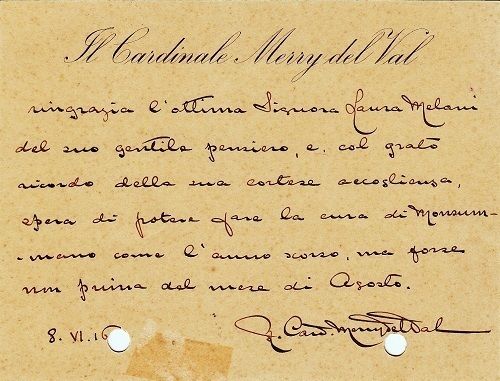 Il Cardinale Merry del Val
ringrazia l'ottima Signora Laura Melani
del suo gentile pensiero, e, col grato
ricordo della sua cortese accoglienza,
spera di potere fare la cura di Monsum-
-mano come l'anno scorso, ma forse
non prima del mese di Agosto.
8. VI. 16
R. Card. Merry del Val